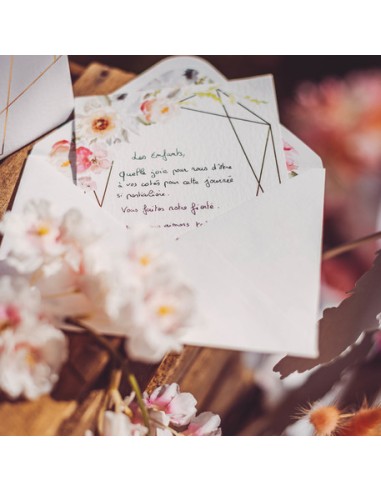 Les enfants,
Quelle joie pour nous d'être
à vos côtés pour cette journée
si particulière.
Vous faites notre fierté.
aimons